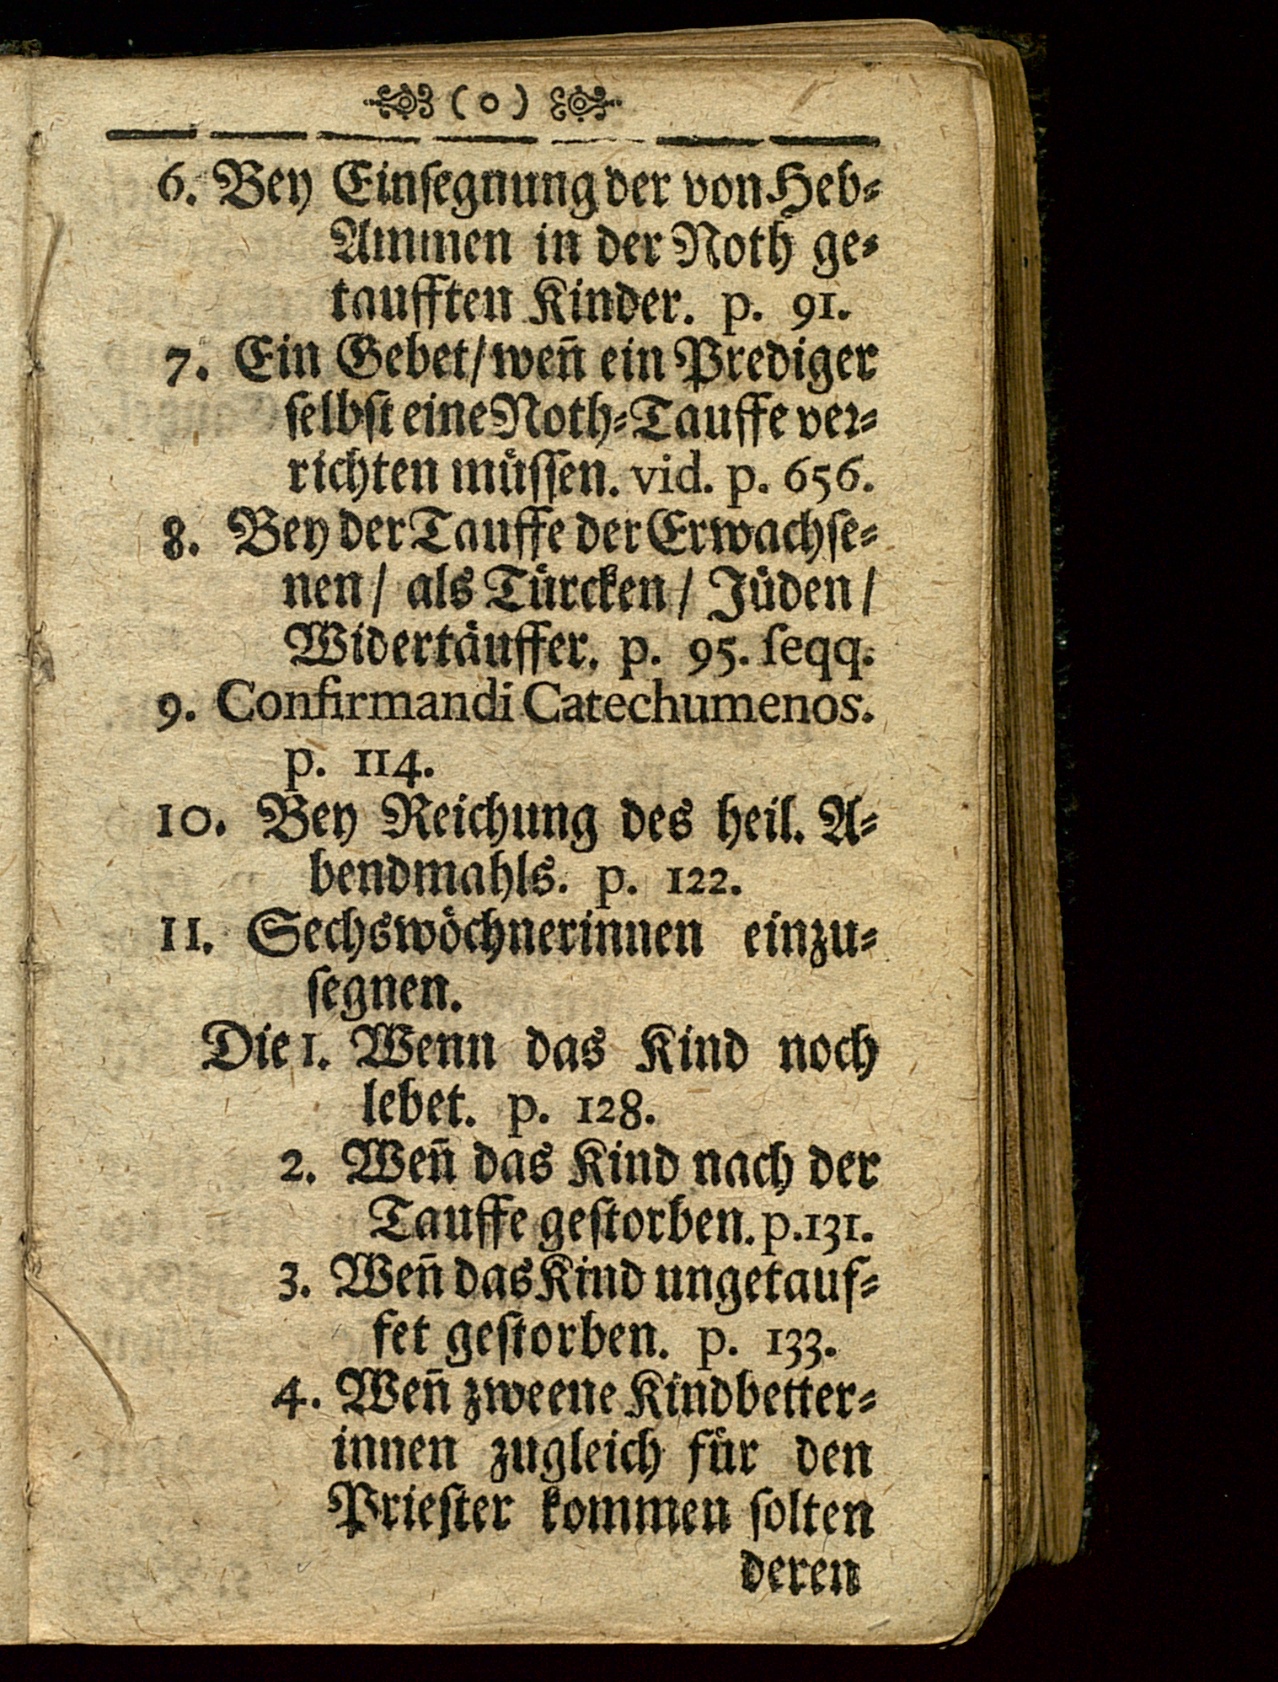 (o)
6. Bey Einſegnung der von Heb⸗
Ammen in der Noth ge⸗
taufften Kinder. p. 91.
7. Ein Gebet/ weñ ein Prediger
ſelbſt eine Noth⸗Tauffe ver⸗
richten müſſen. vid. p. 656.
8. Bey der Tauffe der Erwachſe⸗
nen/ als Türcken/ Jüden/
Widertäuffer. p. 95. ſeqq.
9. Confirmandi Catechumenos.
p. 114.
10. Bey Reichung des heil. A⸗
bendmahls. p. 122.
11. Sechswöchnerinnen einzu⸗
ſegnen.
Die 1. Wenn das Kind noch
lebet. p. 128.
2. Weñ das Kind nach der
Tauffe geſtorben. p. 131.
3. Weñ das Kind ungetauf⸗
fet geſtorben. p. 133.
4. Weñ zweene Kindbetter⸗
innen zugleich für den
Prieſter kommen ſolten
deren